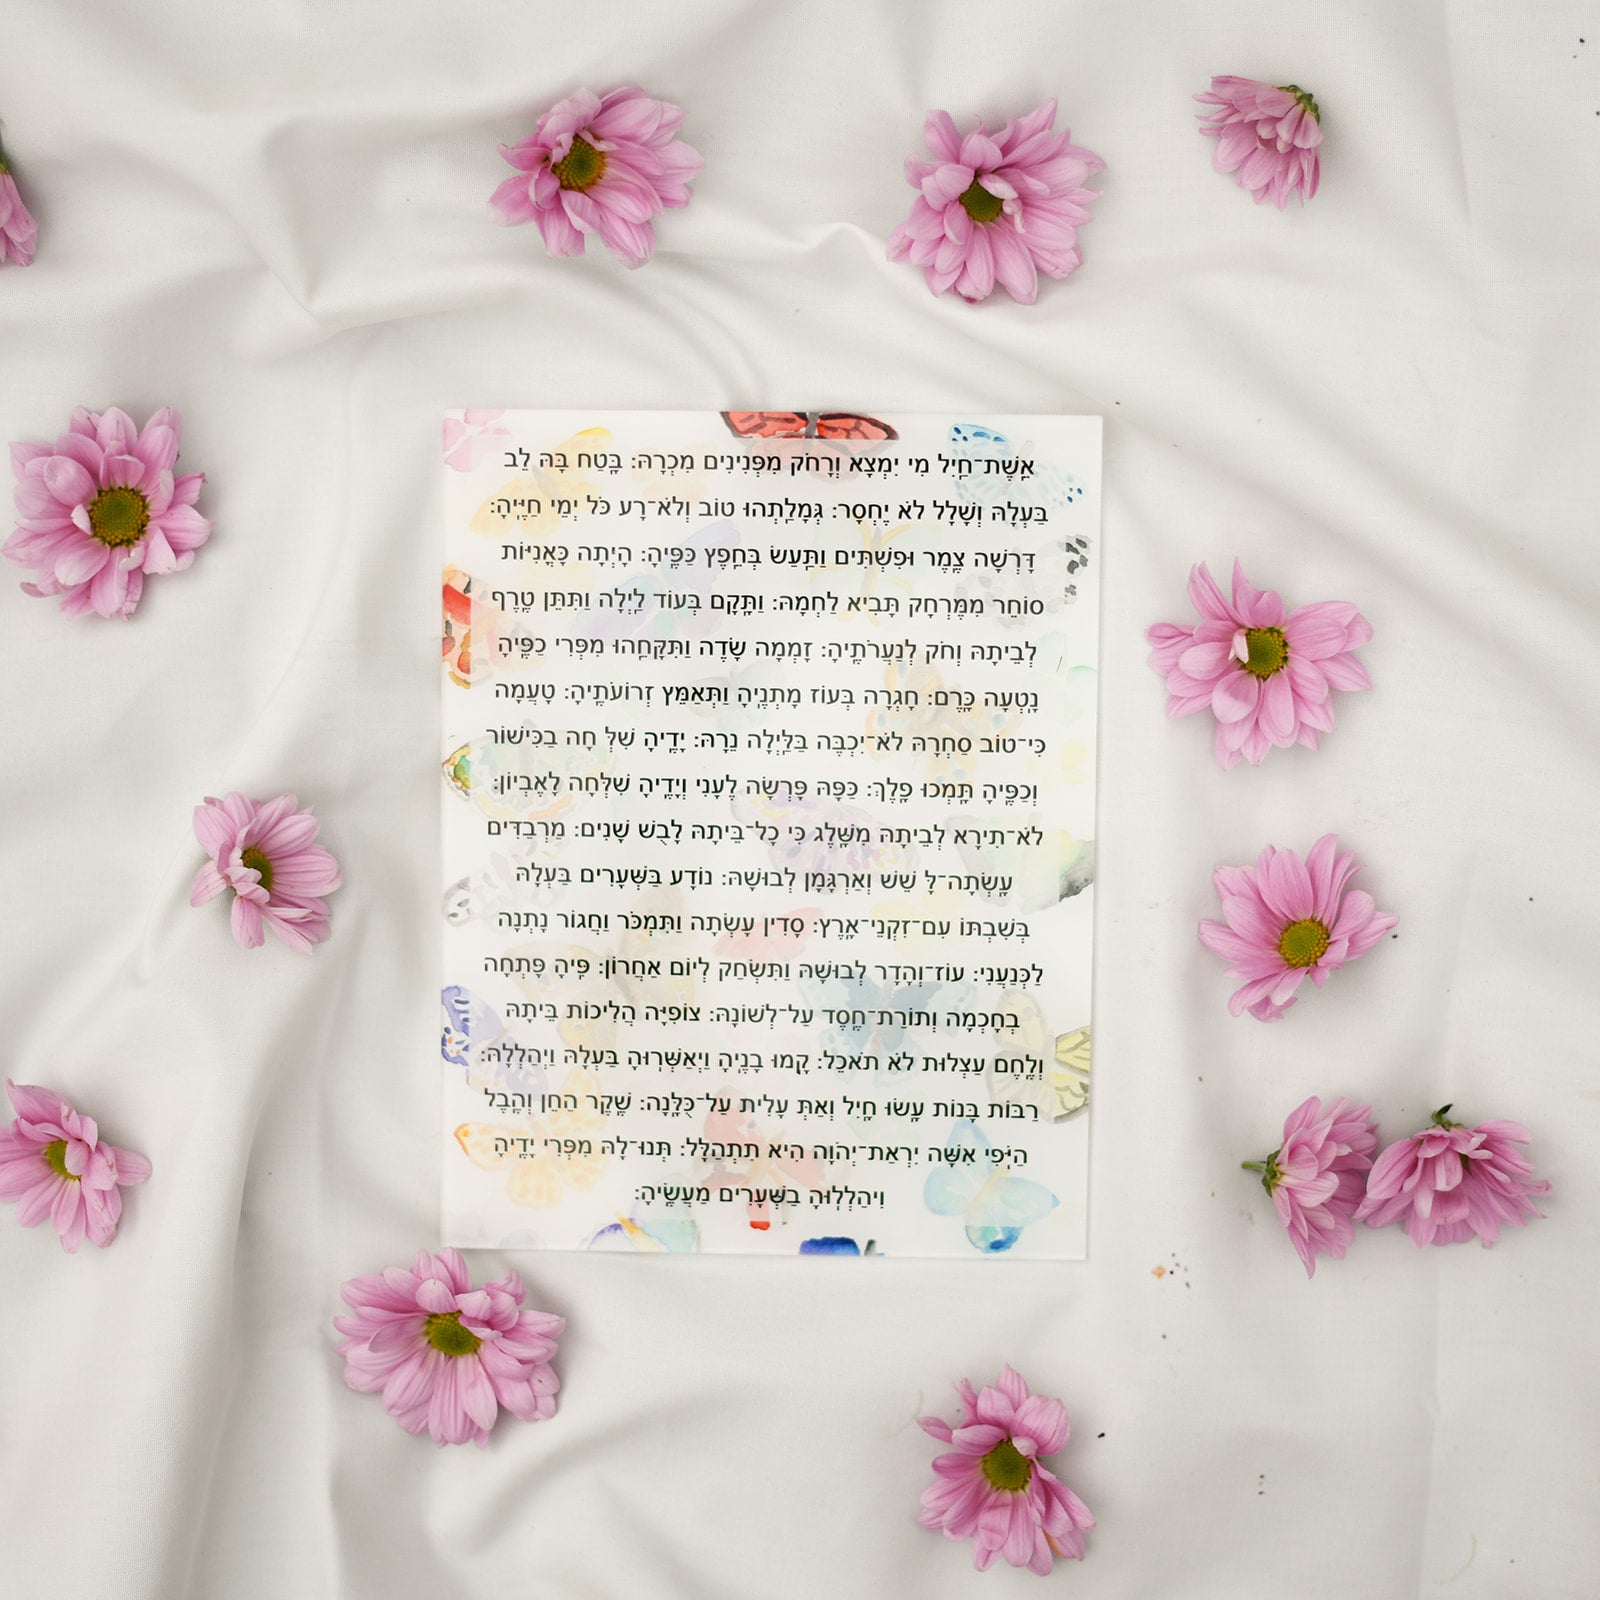 אֵשֶׁת־חַיִל מִי יִמְצָא וְרָחֹק מִפְּנִינִים מִכְרָהּ: בָּטַח בָּהּ לֵב
בַּעְלָהּ וְשָׁלָל לֹא יֶחְסָר: גְּמָלַתְהוּ טוֹב וְלֹא־רָע כֹּל יְמֵי חַיֶּיהָ:
דָּרְשָׁה צֶמֶר וּפִשְׁתִּים וַתַּעַשׂ בְּחֵפֶץ כַּפֶּיהָ: הָיְתָה כָּאֳנִיּוֹת
סוֹחֵר מִמֶּרְחָק תָּבִיא לַחְמָהּ: וַתָּקָם בְּעוֹד לַיְלָה וַתִּתֵּן טֶרֶף
לְבֵיתָהּ וְחֹק לְנַעֲרֹתֶיהָ: זָמְמָה שָׂדֶה וַתִּקָּחֵהוּ מִפְּרִי כַפֶּיהָ
נָטְעָה כָּרֶם: חָגְרָה בְּעוֹז מָתְנֶיהָ וַתְּאַמֵּץ זְרוֹעֹתֶיהָ: טָעֲמָה
כִּי־טוֹב סַחְרָהּ לֹא־יִכְבֶּה בַּלַּיְלָה נֵרָהּ: יָדֶיהָ שִׁלְּ חָה בַכִּישׁוֹר
וְכַפֶּיהָ תָּמְכוּ פָלֶךְ: כַּפָּהּ פָּרְשָׂה לֶעָנִי וְיָדֶיהָ שִׁלְּחָה לָאֶבְיוֹן:
לֹא־תִירָא לְבֵיתָהּ מִשָּׁלֶג כִּי כָל־בֵּיתָהּ לָבֻשׁ שָׁנִים: מַרְבַדִּים
עָשְׂתָה־לָּ שֵׁשׁ וְאַרְגָּמָן לְבוּשָׁהּ: נוֹדָע בַּשְּׁעָרִים בַּעְלָהּ
בְּשִׁבְתּוֹ עִם־זִקְנֵי־אָרֶץ: סָדִין עָשְׂתָה וַתִּמְכֹּר וַחֲגוֹר נָתְנָה
לַכְּנַעֲנִי: עוֹז־וְהָדָר לְבוּשָׁהּ וַתִּשְׂחַק לְיוֹם אַחֲרוֹן: פִּיהָ פָּתְחָה
בְחָכְמָה וְתוֹרַת־חֶסֶד עַל־לְשׁוֹנָהּ: צוֹפִיָּה הֲלִיכוֹת בֵּיתָהּ
וְלֶחֶם עַצְלוּת לֹא תֹאכֵל: קָמוּ בָנֶיהָ וַיְאַשְּׁרוּהָ בַּעְלָהּ וַיְהַלְלָהּ:
רַבּוֹת בָּנוֹת עָשׂוּ חָיִל וְאַתְּ עָלִית עַל־כֻּלָּנָה: שֶׁקֶר הַחֵן וְהֶבֶל
הַיֹּפִי אִשָּׁה יִרְאַת־יְהֹוָה הִיא תִתְהַלָּל: תְּנוּ־לָהּ מִפְּרִי יָדֶיהָ
וִיהַלְלוּהָ בַשְּׁעָרִים מַעֲשֶׂיהָ: